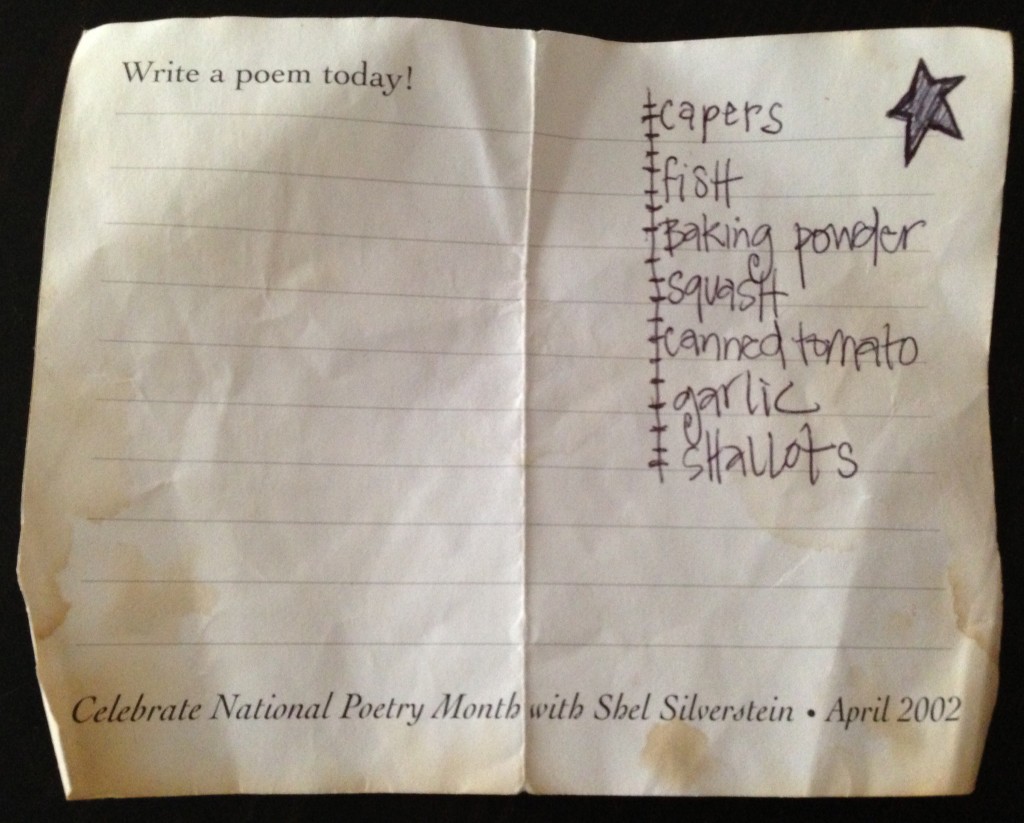 Write a poem today!
capers
fisH
Baking powder
squasH
canned tomato
garlic
sHallots
Celebrate National Poetry Month with Shel Silverstein • April 2002